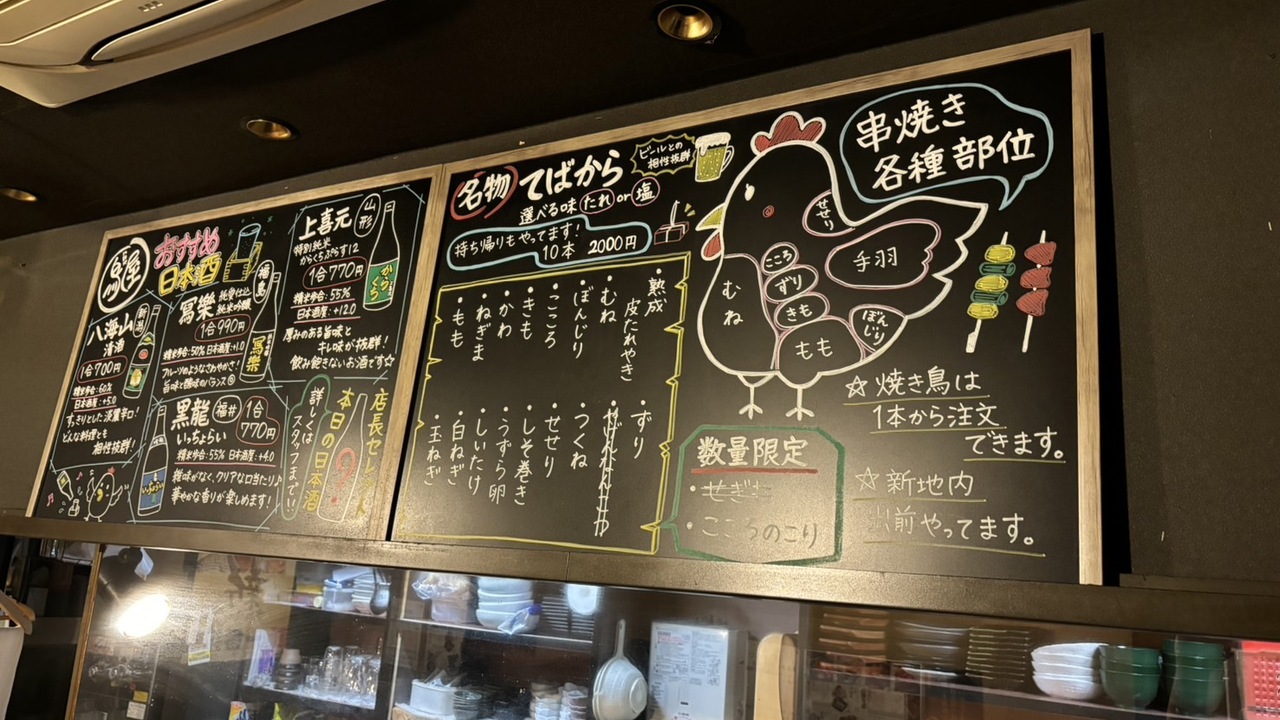 おすすめ
日本酒
八海山
新潟
清酒
1合700円
精米歩合:60%
日本酒度:+5.0
すっきりとした淡麗辛口!
どんな料理とも
相性抜群!
冩樂
福島
純愛仕込
純米吟醸
1合990円
精米歩合:50% 日本酒度:+1.0
フルーツのようなさわやかさ!
旨味と酸味のバランス◎
冩樂
上喜元
山形
特別純米
からくちぷらす12
1合770円
精米歩合:55%
日本酒度:+12.0
厚みのある旨味と
キレ味が抜群!
飲み飽きないお酒です☆
からくち
黒龍
福井
いっちょらい
1合
770円
精米歩合:55% 日本酒度:+4.0
雑味がなく、クリアな口当たり♪
華やかな香りが楽しめます!
店長セレクト
本日の日本酒
?
詳しくは
スタッフまで!!
名物 てばから
ビールとの
相性抜群
選べる味 たれ or 塩
持ち帰りもやってます!
10本 2000円
・熟成
皮たれやき
・むね
・ぼんじり
・こころ
・きも
・かわ
・ねぎま
・もも
・ずり
・つくね
・せせり
・しそ巻き
・うずら卵
・しいたけ
・白ねぎ
・玉ねぎ
串焼き
各種部位
せせり
手羽
こころ
ずり
きも
むね
もも
ぼんじり
数量限定
・こころのこり
☆焼き鳥は
1本から注文
できます。
☆新地内
出前やってます。